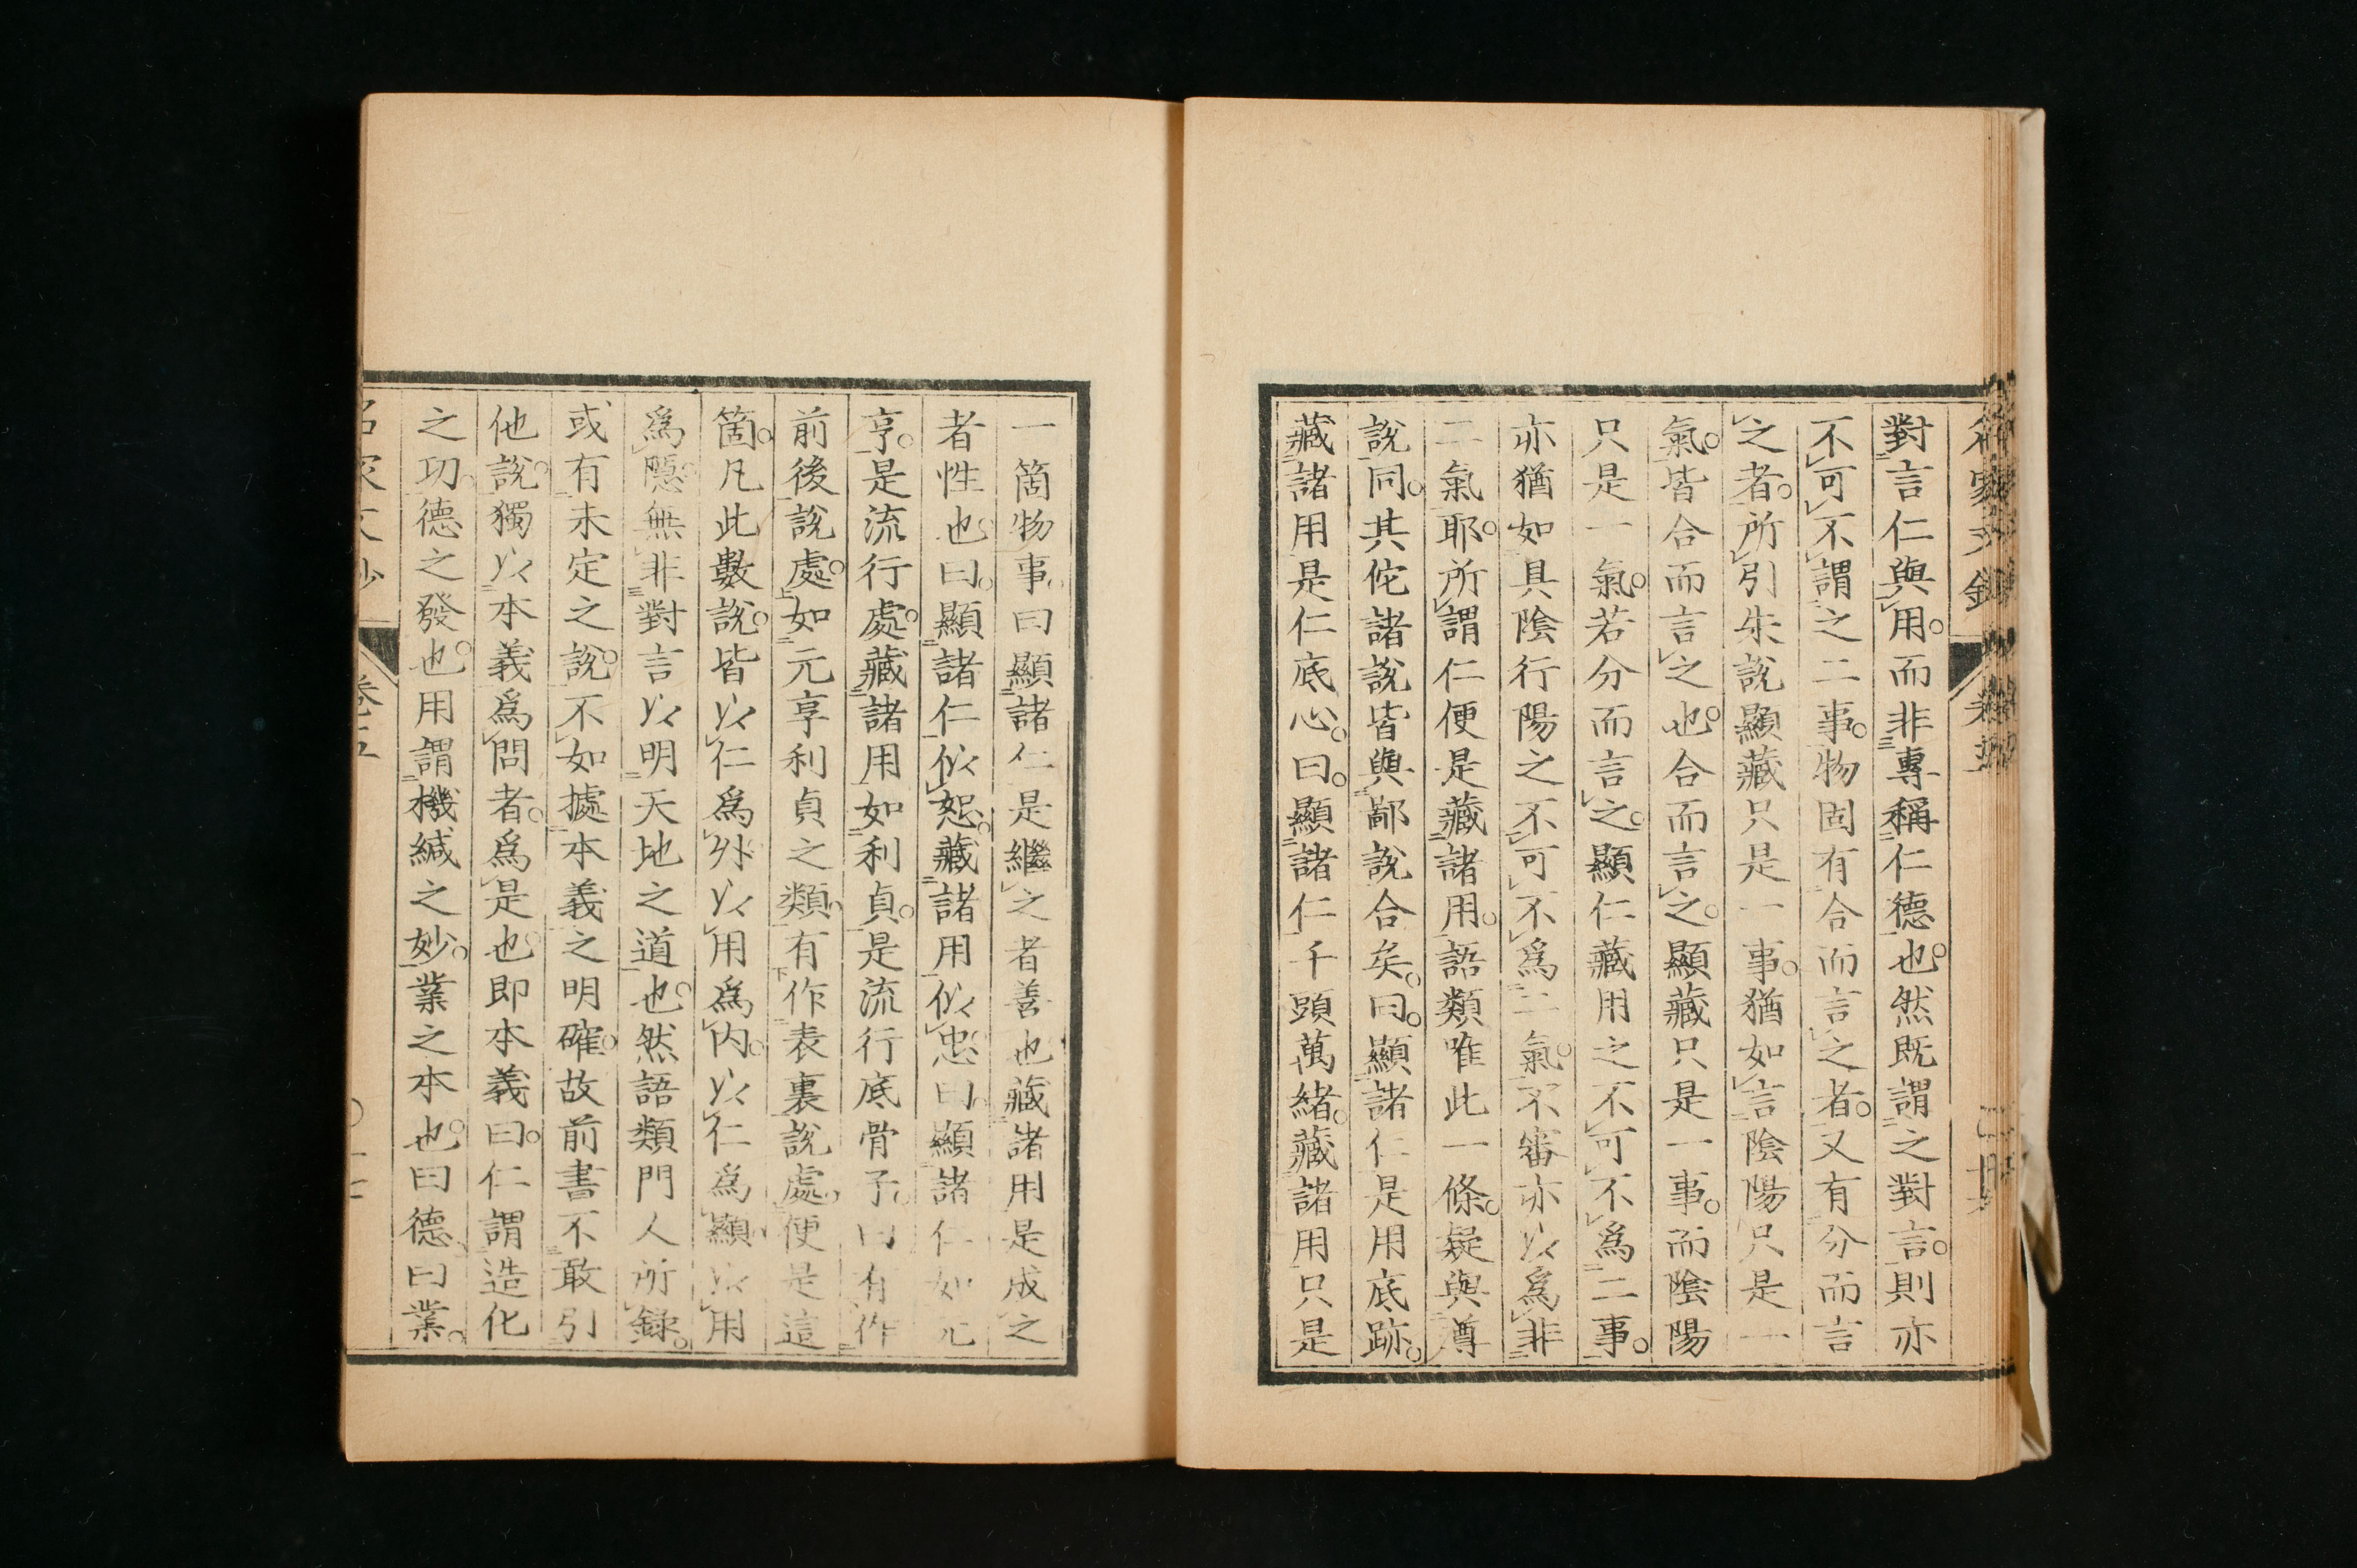 對言仁與用。而非專稱仁德也。然既謂之對言。則亦
不可不謂之二事。物固有合而言之者。又有分而言
之者。所引朱說顯藏只是一事。猶如言陰陽只是一
氣。皆合而言之也。合而言之。顯藏只是一事。而陰陽
只是一氣。若分而言之。顯仁藏用之不可不爲二事。
亦猶如具陰行陽之不可不爲二氣。不審亦以爲非
二氣耶。所謂仁便是藏諸用。語類唯此一條。疑與尊
說同。其佗諸說皆與鄙說合矣。曰。顯諸仁是用底跡。
藏諸用是仁底心。曰。顯諸仁千頭萬緒。藏諸用只是
一箇物事。曰顯諸仁是繼之者善也藏諸用是成之
者性也。曰。顯諸仁似恕。藏諸用似忠。曰。顯諸仁如元
亨。是流行處。藏諸用如利貞。是流行底骨子。曰有作
前後說處。如元亨利貞之類。有作表裏說處。便是這
箇。凡此數說。皆以仁爲外以用爲內。以仁爲顯以用
爲隱。無非對言以明天地之道也。然語類門人所錄。
或有未定之說。不如據本義之明確。故前書不敢引
他說。獨以本義爲問者。爲是也。即本義曰。仁謂造化
之功。德之發也。用謂機緘之妙。業之本也。曰德曰業。
名家文鈔 卷五